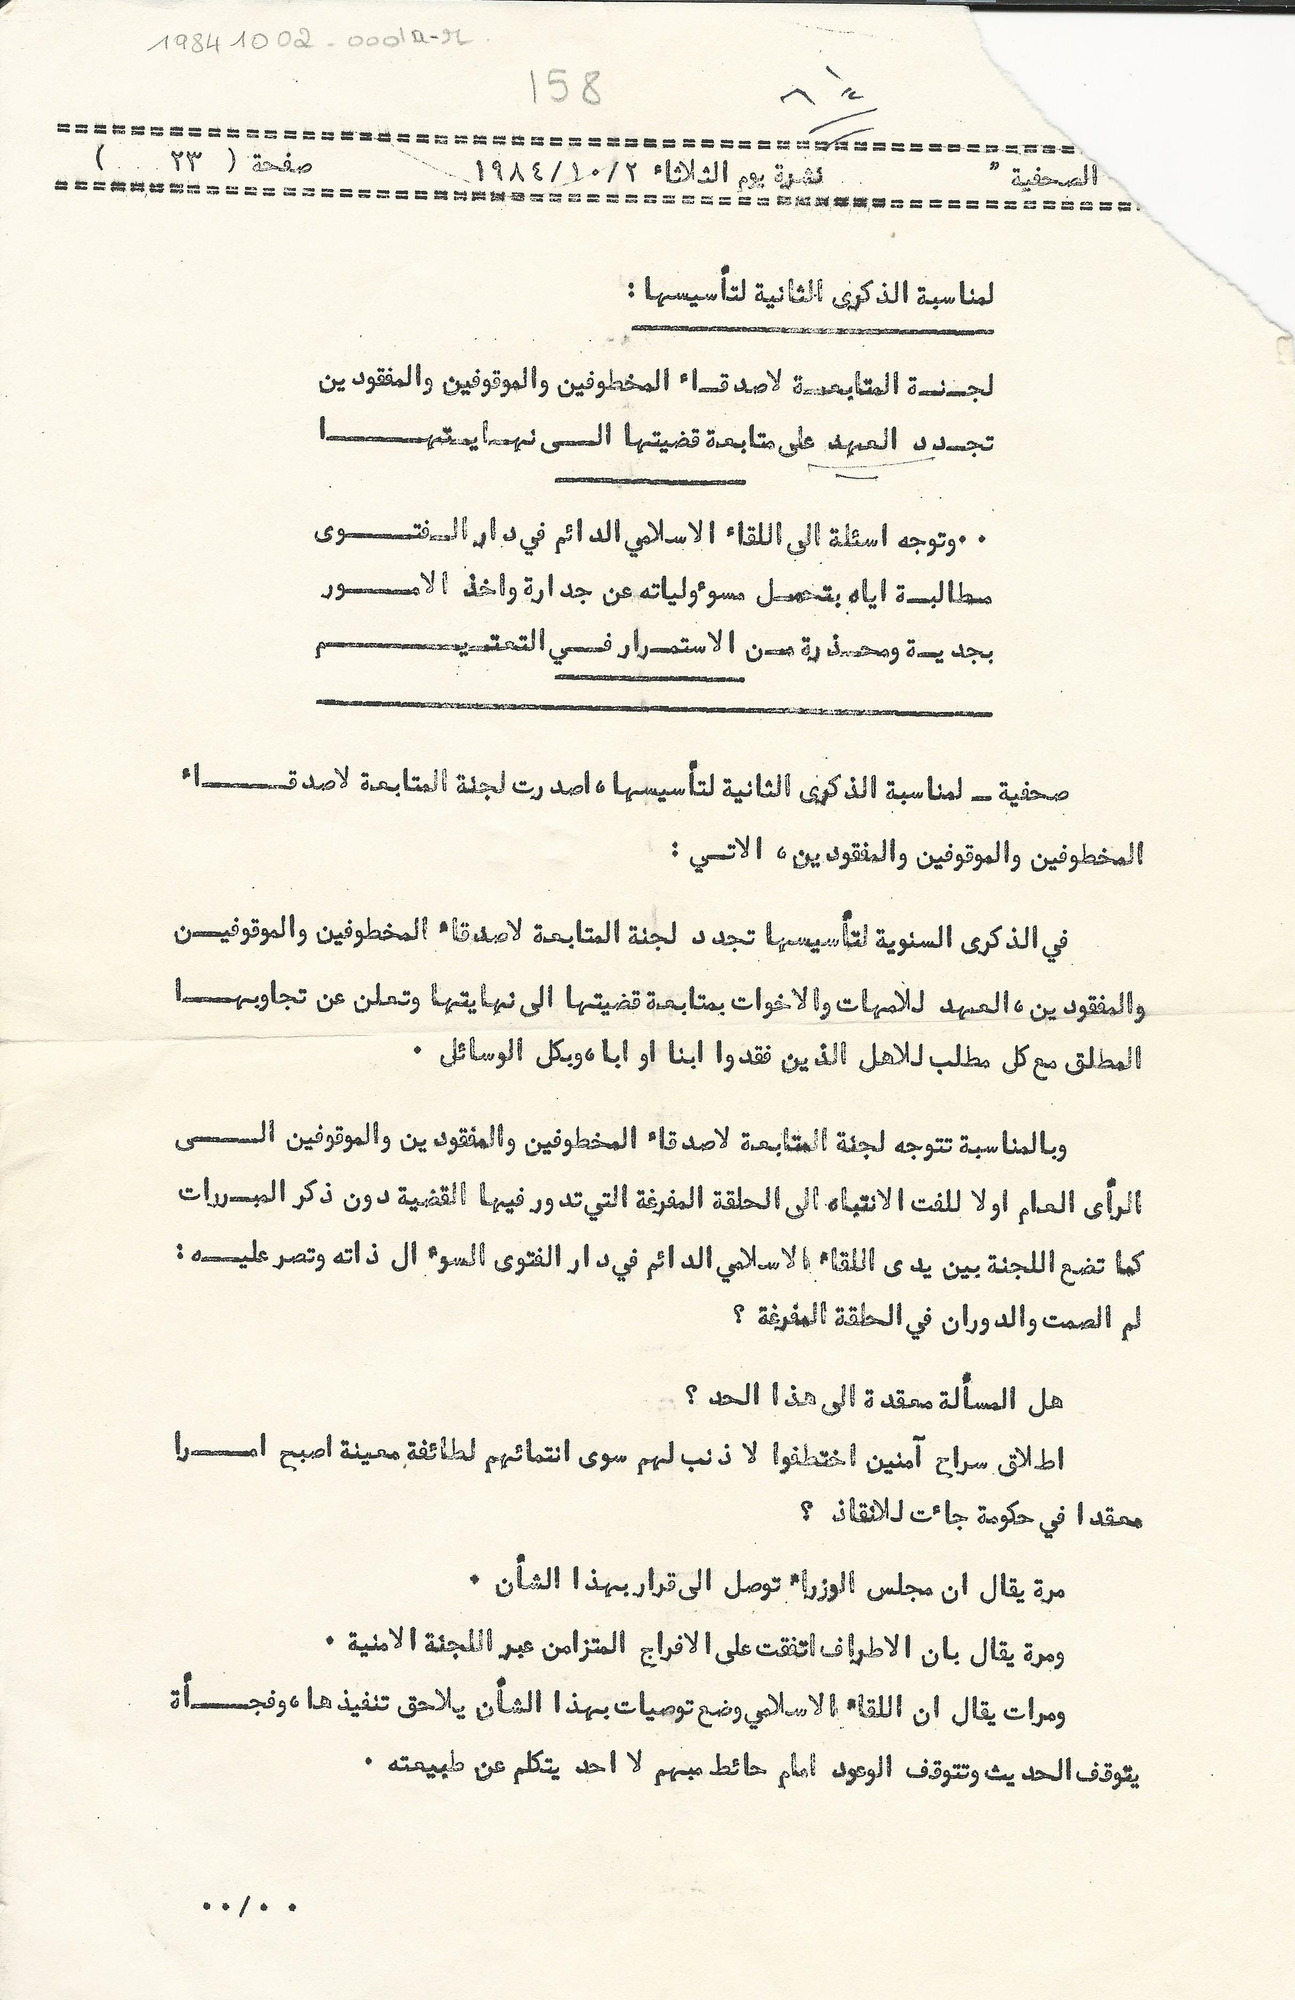 19841002-0001a-
158
الصحفية " نشرة يوم الثلاثاء ١٩٨٤/١٠/٢ صفحة ( ٢٣ )
لمناسبة الذكرى الثانية لتأسيسها :
لجـنـة المتابعـة لاصدقـاء المخطوفين والموقوفين والمفقودين
تجـدد العهد على متابعة قضيتها الـى نهـايـتهـــا
٠٠وتوجه اسئلة الى اللقاء الاسلامي الدائم في دار الـفتـــوى
مطالبـة اياه بتحمـل مسوءولياته عن جدارة واخذ الامـــور
بجديـة ومحـذرة مـن الاستمـرار فـي التعتـيـــم
صحفية ـ لمناسبة الذكرى الثانية لتأسيسها، اصدرت لجنة المتابعة لاصدقـــاء
المخطوفين والموقوفين والمفقودين، الاتـي :
في الذكرى السنوية لتأسيسها تجدد لجنة المتابعة لاصدقاء المخطوفين والموقوفيـن
والمفقودين، العهد للامهات والاخوات بمتابعة قضيتها الى نهايتها وتعلن عن تجاوبهـــا
المطلق مع كل مطلب للاهل الذين فقدوا ابنا او ابا،وبكل الوسائل ٠
وبالمناسبة تتوجه لجنة المتابعة لاصدقاء المخطوفين والمفقودين والموقوفين الـــى
الرأى العام اولا للفت الانتباه الى الحلقة المفرغة التي تدور فيها القضية دون ذكر المبـررات
كما تضع اللجنة بين يدى اللقاء الاسلامي الدائم في دار الفتوى السوءال ذاته وتصر عليـــه :
لم الصمت والدوران في الحلقة المفرغة ؟
هل المسألة معقدة الى هذا الحد ؟
اطلاق سراح آمنين اختطفوا لا ذنب لهم سوى انتمائهم لطائفة معينة اصبح امـــرا
معقدا في حكومة جاءت للانقاذ ؟
مرة يقال ان مجلس الوزراء توصل الى قرار بهذا الشأن ٠
ومرة يقال بان الاطراف اتفقت على الافراج المتزامن عبر اللجنة الامنية ٠
ومرات يقال ان اللقاء الاسلامي وضع توصيات بهذا الشأن يلاحق تنفيذها، وفجـــأة
يتوقف الحديث وتتوقف الوعود امام حائط مبهم لا احد يتكلم عن طبيعته ٠
٠٠/٠٠